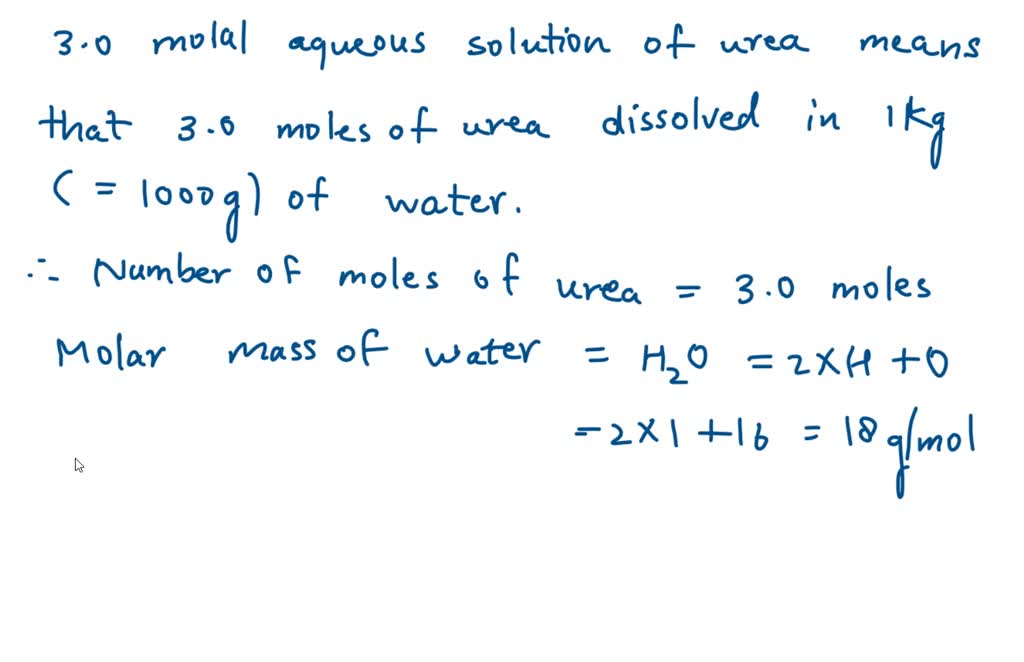 3.0 molal aqueous solution of urea means
that 3.0 moles of urea dissolved in 1kg
(= 1000g) of water.
∴ Number of moles of urea = 3.0 moles
Molar mass of water = H₂O = 2×H + O
= 2×1 + 16 = 18 g/mol